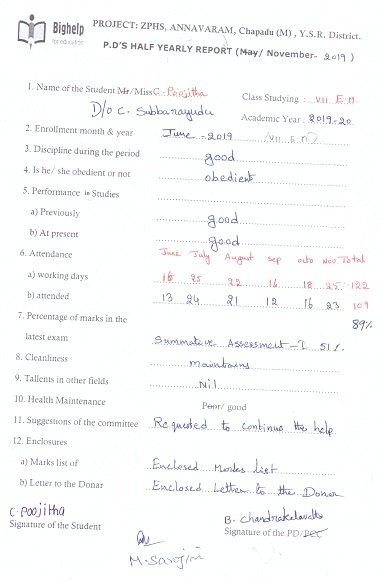 Bighelp
for education
PROJECT: ZPHS, ANNAVARAM, Chapadu (M) , Y.S.R. District.
P.D'S HALF YEARLY REPORT (May/ November- 2019)
1. Name of the Student Mr/Miss C. Poojitha
Class Studying : VII E.M
D/o C. Subbarayudu
Academic Year : 2019-20
2. Enrollment month & year June - 2019 (VII E.M)
3. Discipline during the period good
4. Is he/ she obedient or not obedient
5. Performance in Studies
a) Previously good
b) At present good
6. Attendance June July August sep octo Nov. Total
a) working days 18 25 22 16 18 25 122
b) attended 13 24 21 12 16 23 109
89%
7. Percentage of marks in the
latest exam Summative Assessment-I 51%
8. Cleanliness maintains
9. Tallents in other fields Nil
10. Health Maintenance Poor/ good
11. Suggestions of the committee Requested to continue the help.
12. Enclosures
a) Marks list of Enclosed Marks list
b) Letter to the Donar Enclosed Letter to the Donar
C. Poojitha
Signature of the Student
B. Chandrakalavathi
Signature of the PD/DEC
M. Sarojini